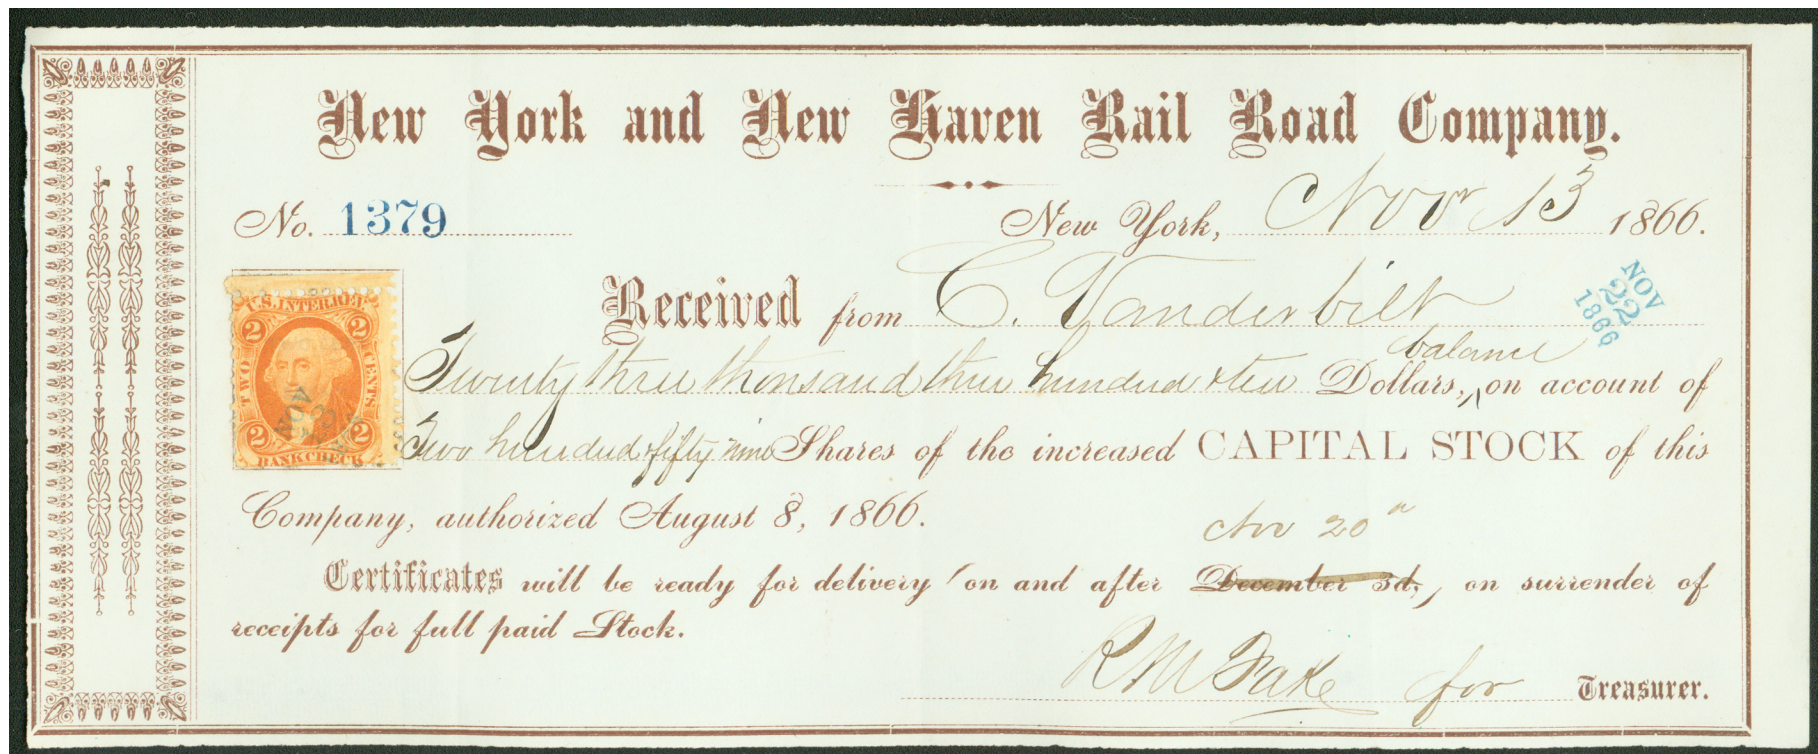 New York and New Haven Rail Road Company.
No. 1379
New York, Nov 13 1866.
Received from C. Vanderbilt
NOV 22 1866
balance
Twenty three thousand three hundred & ten Dollars, on account of
Two hundred fifty nine Shares of the increased CAPITAL STOCK of this
Company, authorized August 8, 1866.
Nov 20"
Certificates will be ready for delivery on and after December 3d, on surrender of
receipts for full paid Stock.
R M Fake for Treasurer.
U.S. INTER. REV.
2 2
TWO CENTS
2 2
BANK CHECK